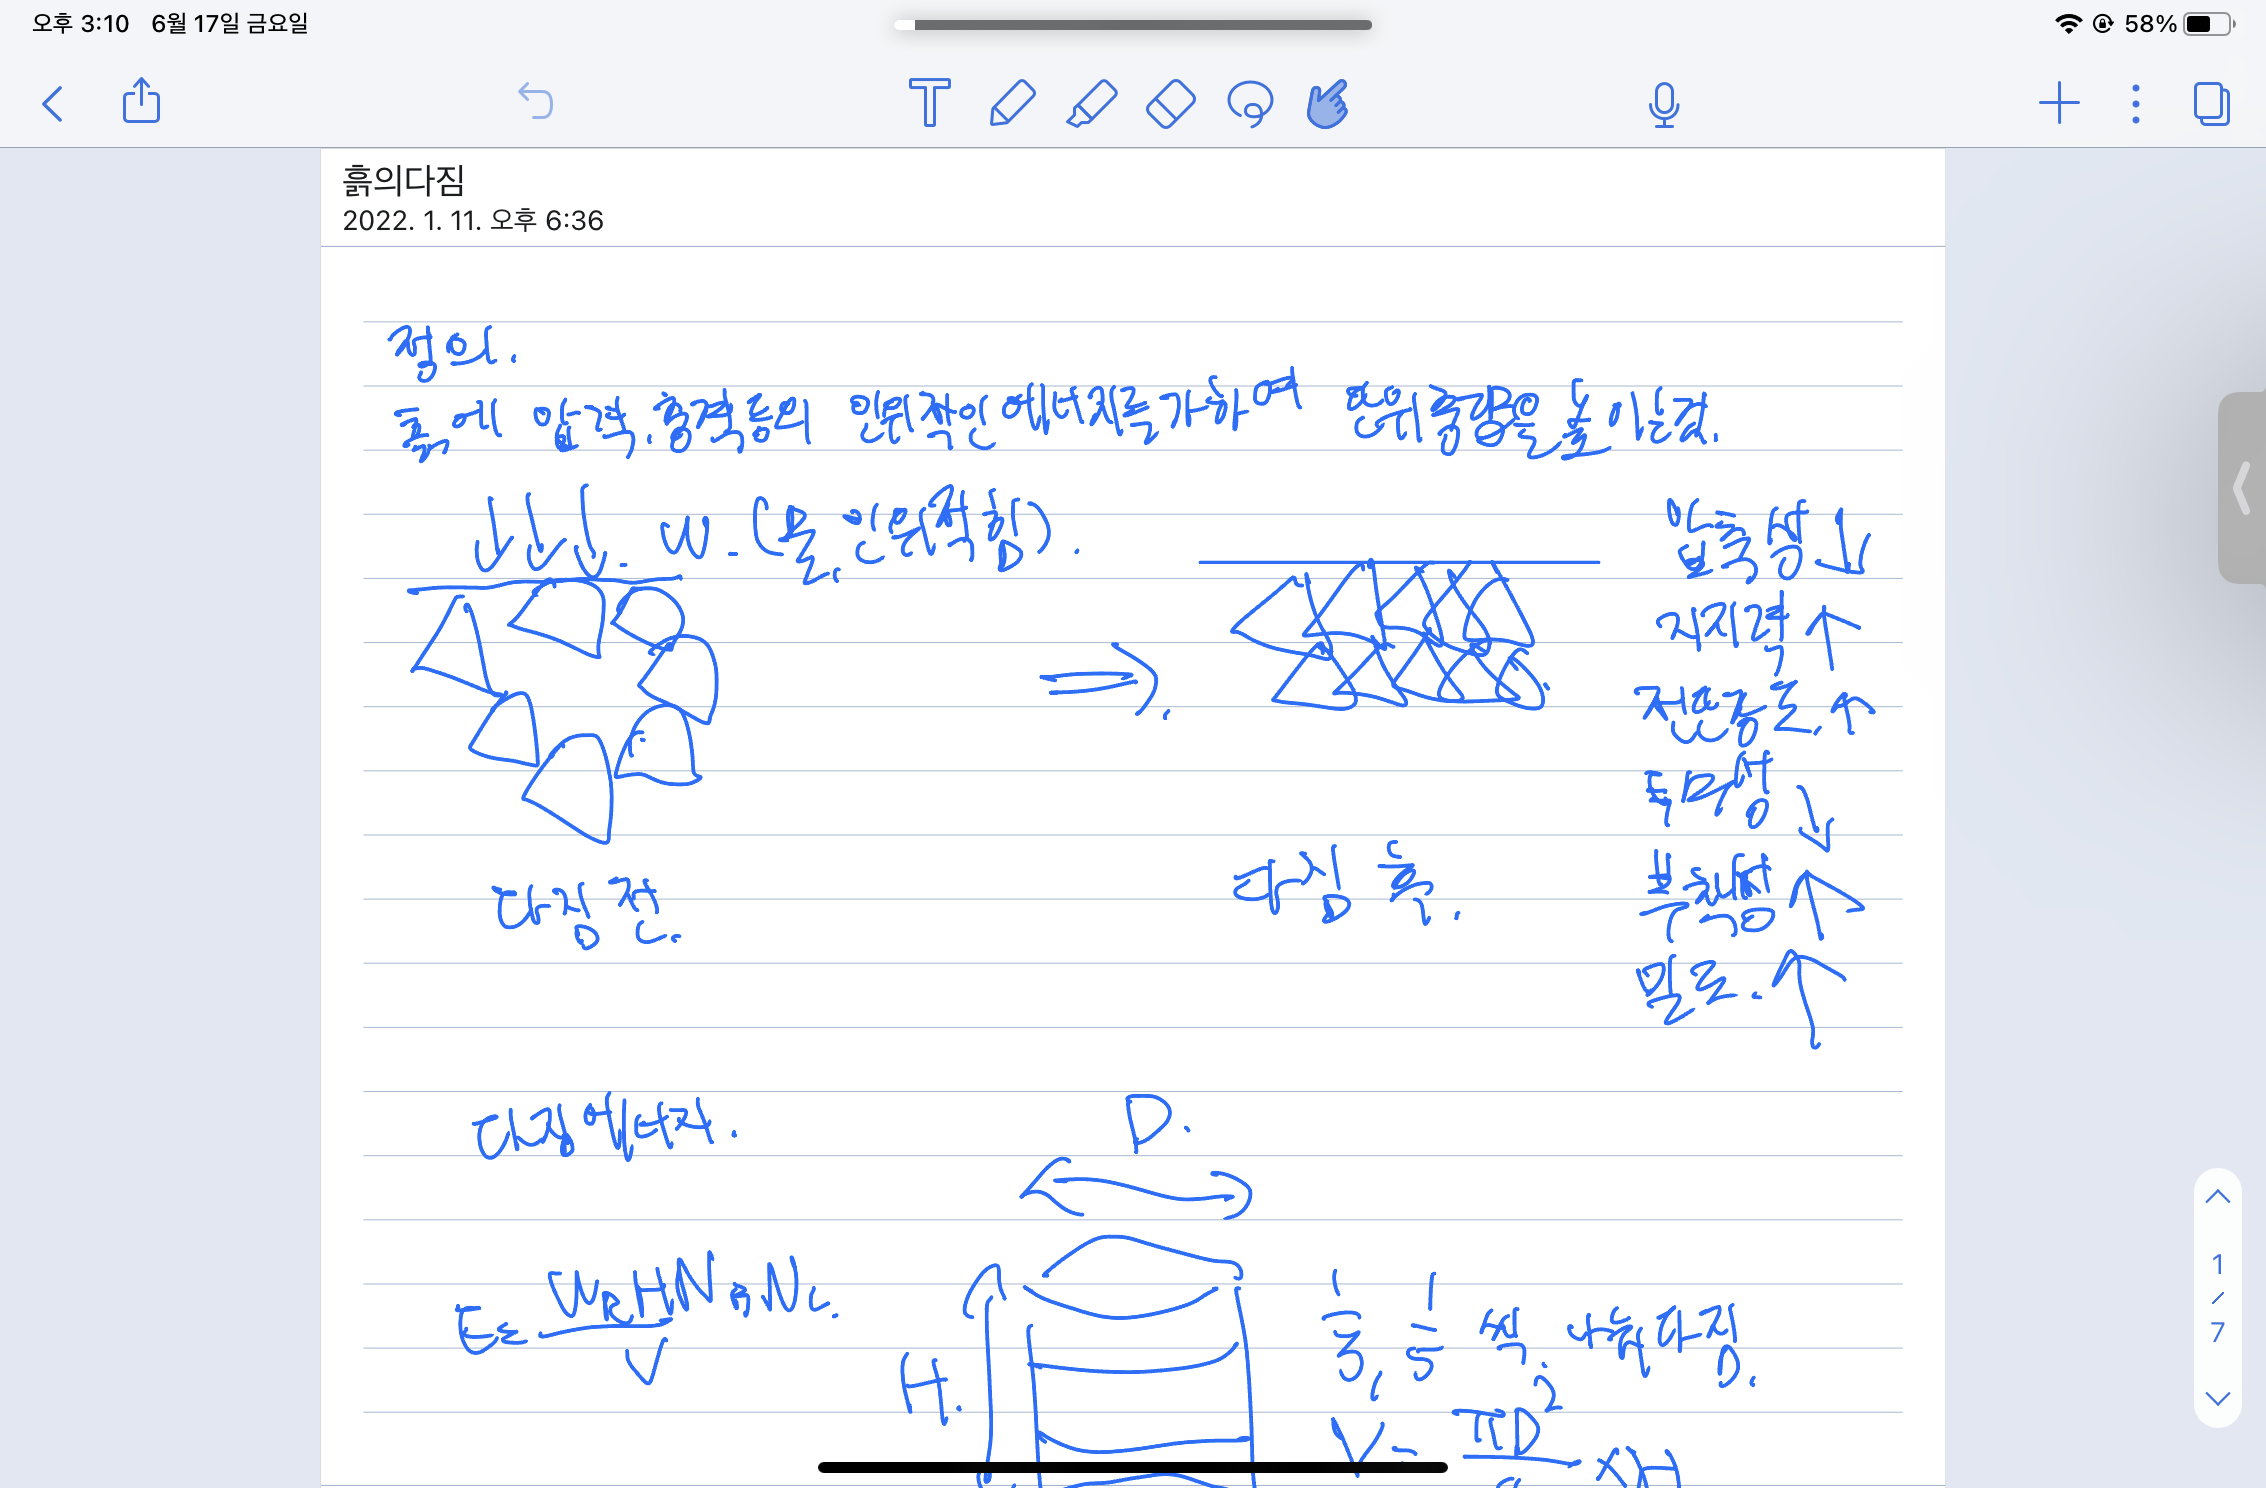 오후 3:10 6월 17일 금요일 58%
흙의다짐
2022. 1. 11. 오후 6:36
정의.
흙에 압력,충격등의 인위적인에너지를가하여 단위중량을높이는것.
W. (물, 인위적힘).
압축성↓
지지력↑
전단강도↑
투수성↓
부착성↑
밀도.↑
다짐전.
다짐 후.
다짐에너지.
D.
E= WRHNBNL.
V
H.
1/3, 1/5 씩. 나눠다짐.
V= πD²
×H
1
/
7